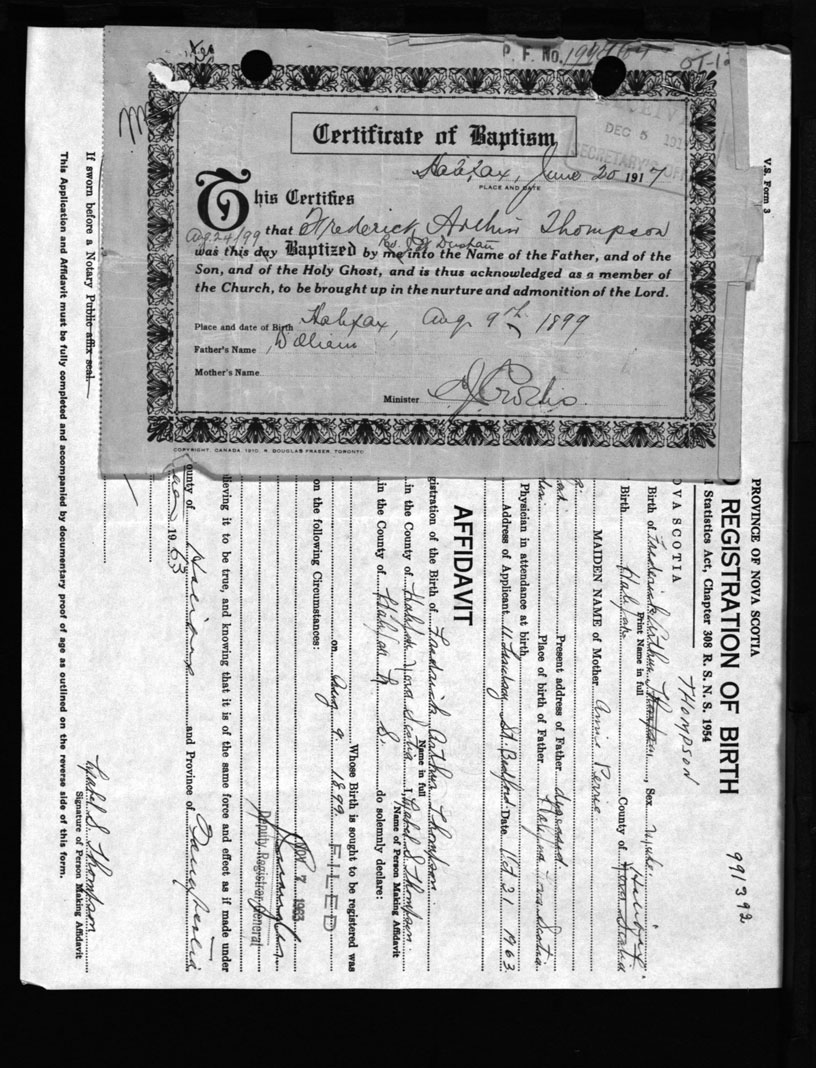 P. F. No.
DEC 5 191
SECRETARY'S OF
Certificate of Baptism
Halifax, June 20 1917
PLACE AND DATE
This Certifies
that Frederick Arthur Thompson
Aug. 24/99
was this day Baptized by me into the Name of the Father, and of the
Son, and of the Holy Ghost, and is thus acknowledged as a member of
the Church, to be brought up in the nurture and admonition of the Lord.
Place and date of Birth Halifax, Aug 9th 1899
Father's Name William
Mother's Name
Minister
COPYRIGHT, CANADA, 1910, R. DOUGLAS FRASER, TORONTO
V.S. Form 3
PROVINCE OF NOVA SCOTIA
D REGISTRATION OF BIRTH
991392
l Statistics Act, Chapter 308 R. S. N. S. 1954
OVA SCOTIA
THOMPSON
Birth of Frederick Arthur Thompson, Sex Male
Print Name in full
Birth Halifax County of Halifax Nova Scotia
MAIDEN NAME of Mother Annie
Present address of Father deceased
Place of birth of Father Nova Scotia
Physician in attendance at birth
Address of Applicant St. Bedford Date Oct 21 1963
AFFIDAVIT
gistration of the Birth of Frederick Arthur Thompson
Name in full
in the County of Halifax Nova Scotia I, S. Thompson
Name of Person Making Affidavit
in the County of Halifax N S. do solemnly declare:
Whose Birth is sought to be registered was
on Aug 9 1899
FILED
on the following Circumstances:
NOV 7 1963
Deputy Registrar General
lieving it to be true, and knowing that it is of the same force and effect as if made under
ounty of Halifax and Province of Nova Scotia
19 63
S. Thompson
Signature of Person Making Affidavit
If sworn before a Notary Public affix seal.
This Application and Affidavit must be fully completed and accompanied by documentary proof of age as outlined on the reverse side of this form.